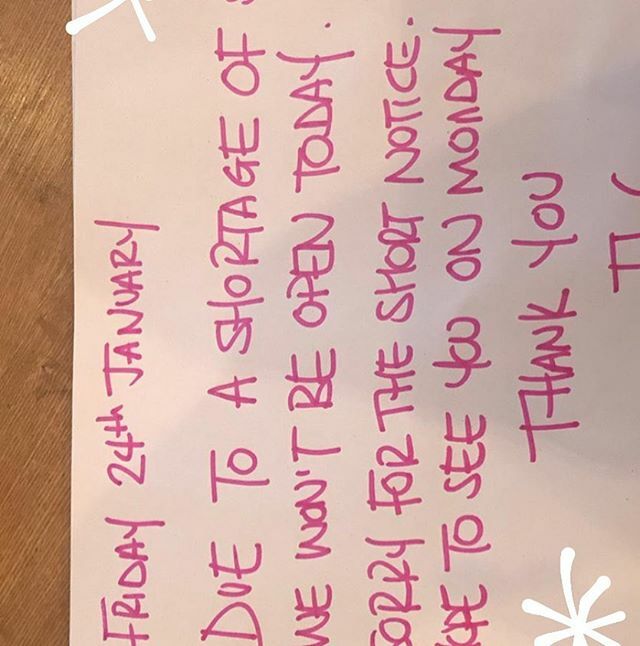 FRIDAY 24th JANUARY
DUE TO A SHORTAGE OF
WE WON'T BE OPEN TODAY.
FOR THE SHORT NOTICE.
TO SEE YOU ON MONDAY
THANK YOU